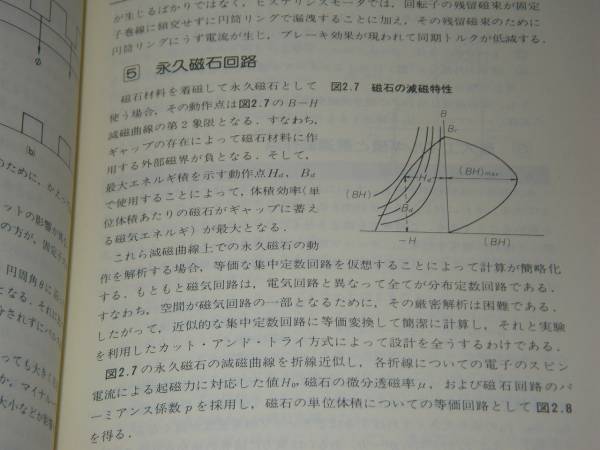 が生じるばかりではなく，ヒステリシスモータでは，回転子の残留磁束が固定
子巻線に鎖交せずに円筒リングで漏洩することに加え，その残留磁束のために
円筒リングにうず電流が生じ，ブレーキ効果が現われて同期トルクが低減する．
5 永久磁石回路
磁石材料を着磁して永久磁石として
使う場合，その動作点は図2.7のB－H
減磁曲線の第2象限となる．すなわち，
ギャップの存在によって磁石材料に作
用する外部磁界が負となる．そして，
最大エネルギ積を示す動作点Hd，Bd
で使用することによって，体積効率（単
位体積あたりの磁石がギャップに蓄え
る磁気エネルギ）が最大となる．
これら減磁曲線上での永久磁石の動
作を解析する場合，等価な集中定数回路を仮想することによって計算が簡略化
する．もともと磁気回路は，電気回路と異なって全てが分布定数回路である．
すなわち，空間が磁気回路の一部となるために，その厳密解析は困難である．
したがって，近似的な集中定数回路に等価変換して簡潔に計算し，それと実験
を利用したカット・アンド・トライ方式によって設計を全うするわけである．
図2.7の永久磁石の減磁曲線を折線近似し，各折線についての電子のスピン
電流による起磁力に対応した値H0，磁石の微分透磁率μ，および磁石回路のパ
ーミアンス係数pを採用し，磁石の単位体積についての等価回路として図2.8
を得る．
図2.7 磁石の減磁特性
B
Br
(BH)max
Hd
(BH)
Bd
－H
(BH)
φ
(b)
のために，かえっ
ットの影響が
の方が，固定子
円周角θに
になる．それに
分されずにパル
っても大きく
か，マイナル
大小などが影響